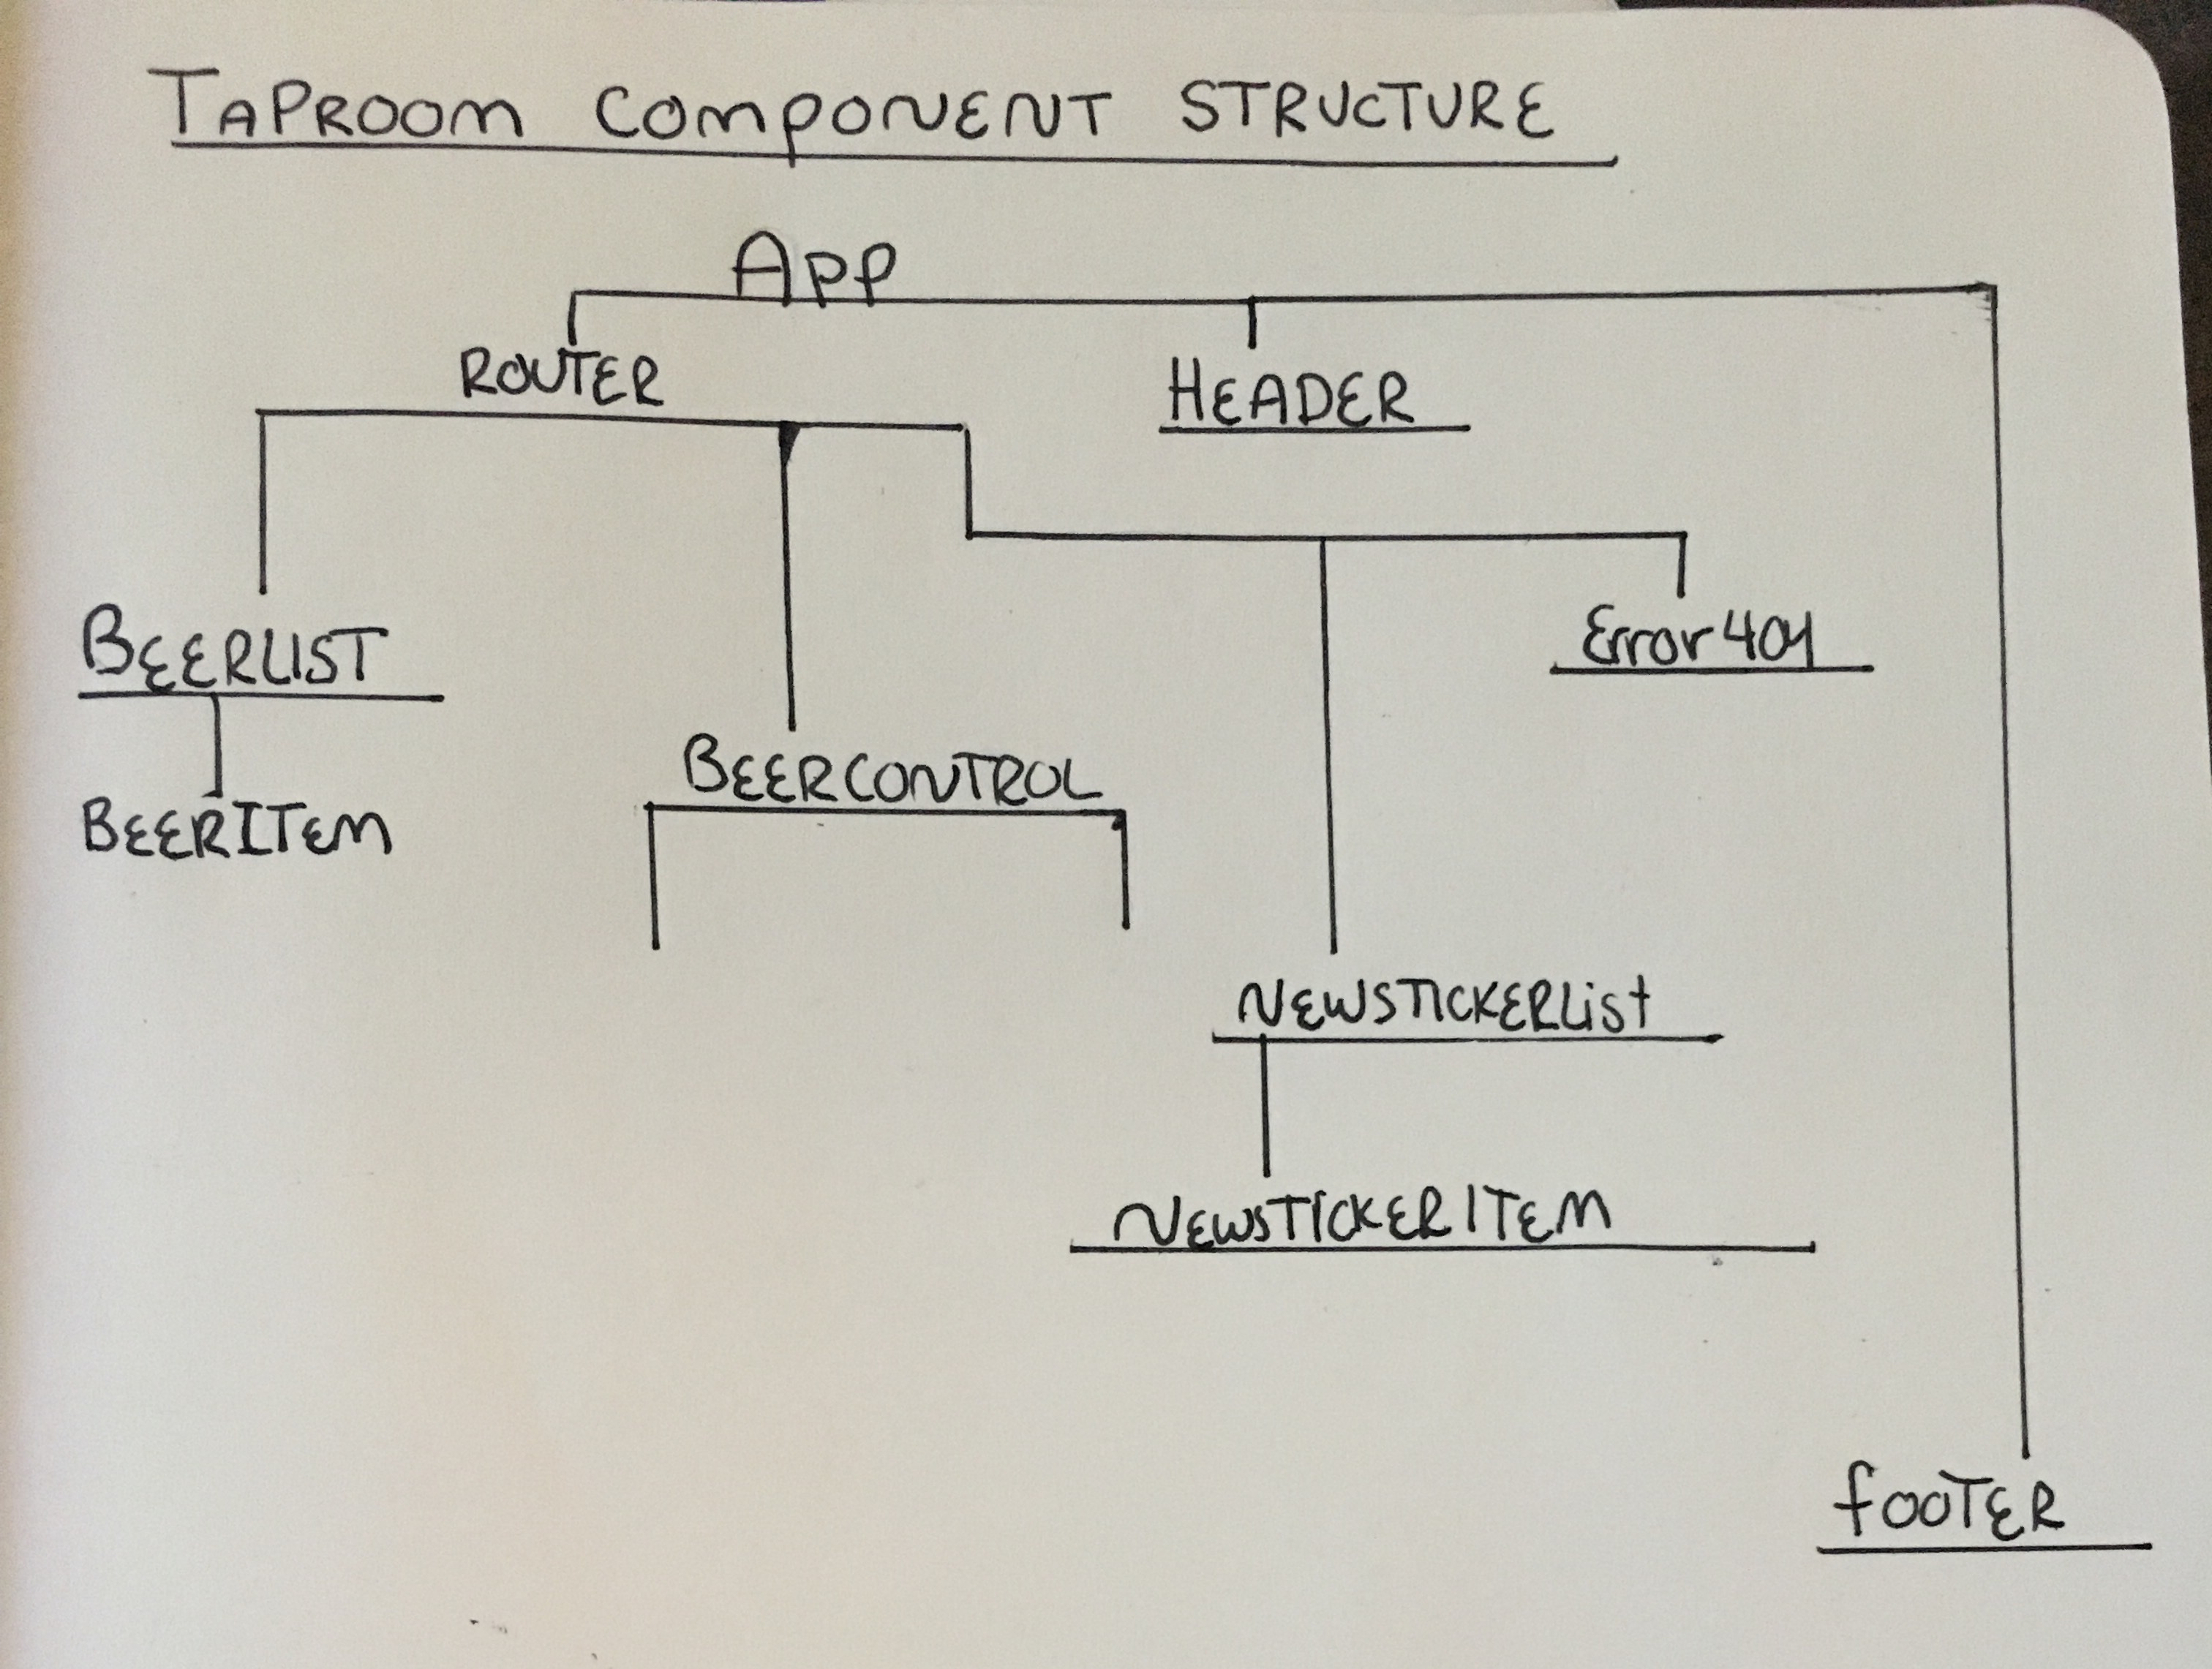 TAPROOM COMPONENT STRUCTURE
APP
ROUTER
HEADER
BEERLIST
Error404
BEERCONTROL
BEERITEM
NEWSTICKERList
NEWSTICKERITEM
fOOTER